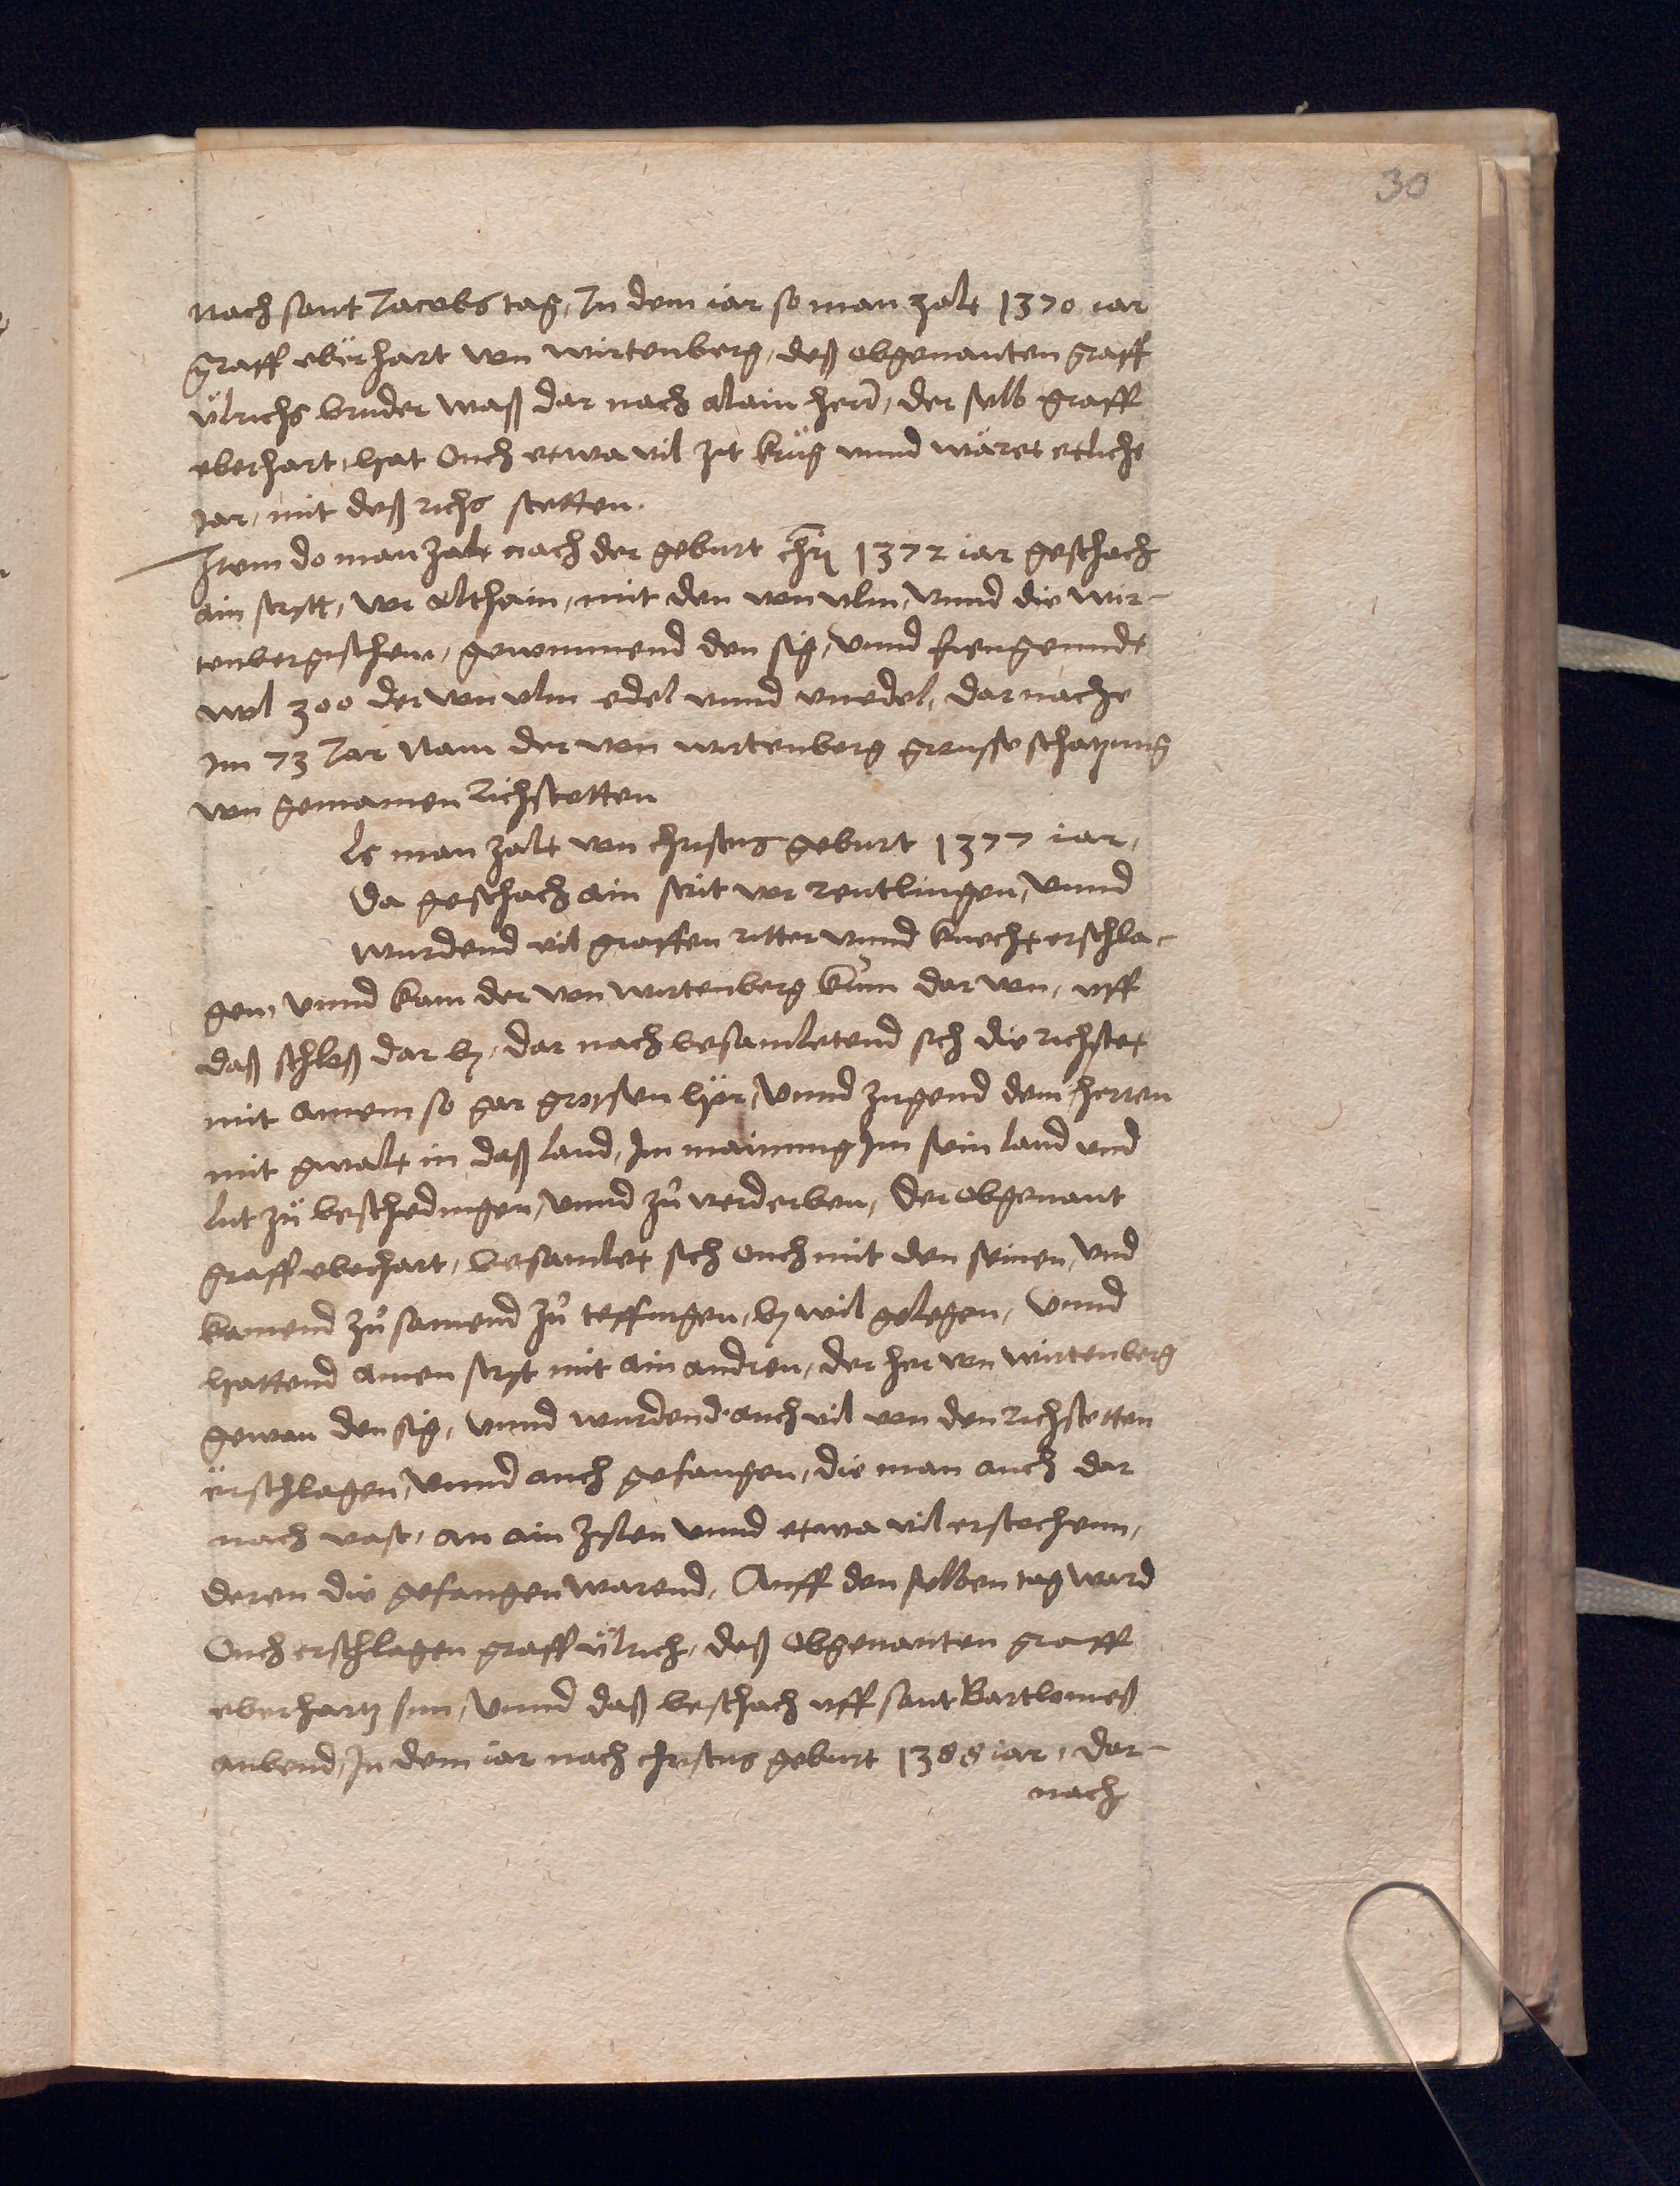 30
nach sant Jacobs tag, In dem iar so man zalt 1370 iar
graff eberhart von wirtenberg, deß obgenanten graff
ůlrichs bruder waß dar nach alain herr, der selb graff
eberhart, hat Ouch etwa vil zit krüg vnnd wäret etliche
Jar, mit deß richs stetten.
Item do man zalt nach der geburt chri 1372 iar geschach
ain strytt, vor althaim, mit den von vlm, Vnnd die wir-
tenbergischem, gewunnend den sig, Vnnd fiengenndt
wol 300 der von vlm edel vnnd vnedel, dar nache
Im 73 Jar Nam der von wirtenberg grousse schatzung
von gemainen Richstetten
ls man zalt von christus geburt 1377 iar,
Da geschach ain strit vor reutlingen, Vnnd
wurdend vil graffen ritter vnnd knecht erschla-
gen, Vnnd kam der von wirtenberg kům dar von, vff
daß schloß dar by, dar nach besamletend sich die richstet
mit ainem so gar groysen hör, Vnnd zugend dem herren
mit gwalt in daß land, Im mainung Im sein land vnd
lüt zů beschedingen, Vnnd zů verderben, der obgenant
graff eberhart, besamlet sich ouch mit den seinen, Vnd
kamend zů samend zů teffingen, by wil gelegen, Vnnd
hattend ainen stryt mit ain andren, der her von wirtenberg
gewan den sig, Vnnd wurdend auch vil von den Richstetten
erschlagen, Vnnd auch gefangen, die man auch dar
nach vast, an ain zylen Vnnd etwa vil erstochenn,
deren die gefangen warend, Auff den selben tag ward
Ouch erschlagen graff ůlrich, deß Obgenanten graff
eberhartz sun, Vnnd daß beschach vff sant Bartlomeß
aubend, In dem iar nach christus geburt 1388 iar, dar-
nach